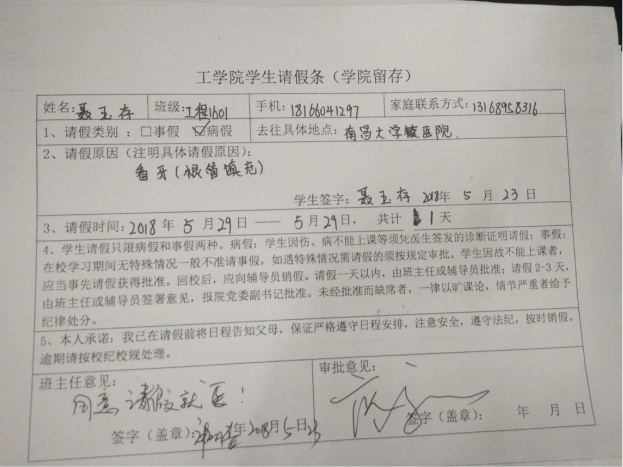 工学院学生请假条（学院留存）
姓名：聂玉存 班级：工程1601 手机：18166041297 家庭联系方式：13168958316
1、请假类别：□事假 ☑病假 去往具体地点：南昌大学 医院.
2、请假原因（注明具体请假原因）：
看牙（根管填充）
学生签字：聂玉存 2018年 5 月 23 日
3、请假时间：2018 年 5 月 29 日 —— 5 月 29 日， 共计 1 天
4、学生请假只限病假和事假两种。病假：学生因伤、病不能上课等须凭医生签发的诊断证明请假；事假：
在校学习期间无特殊情况一般不准请事假，如遇特殊情况需请假的须按规定审批。学生因故不能上课者，
应当事先请假获得批准。回校后，应向辅导员销假。请假一天以内，由班主任或辅导员批准；请假 2-3 天，
由班主任或辅导员签署意见，报院党委副书记批准。未经批准而缺席者，一律以旷课论，情节严重者给予
纪律处分。
5、本人承诺：我已在请假前将日程告知父母，保证严格遵守日程安排，注意安全，遵守法纪，按时销假。
逾期请按校纪校规处理。
班主任意见：
同意请假就医！
签字（盖章）： 年2018月5日23
审批意见：
签字（盖章）： 年 月 日